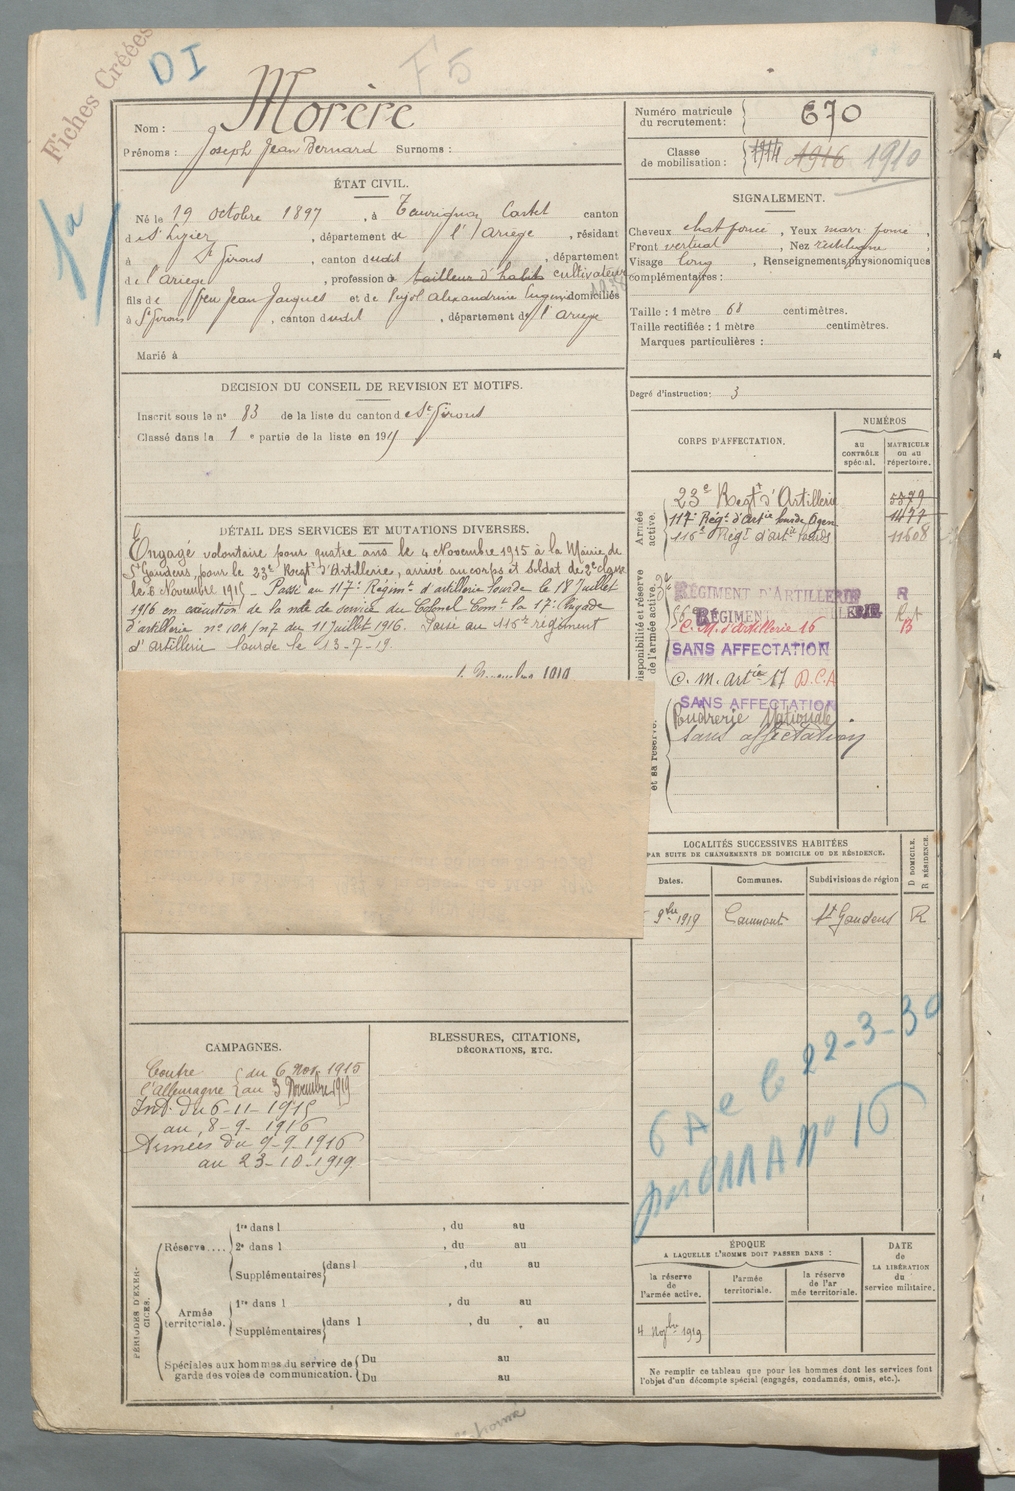 Fiches Créées
DI
F5
Nom : Morère
Prénoms : Joseph Jean Bernard Surnoms :
Numéro matricule du recrutement : 670
Classe de mobilisation : 1914 1916 1910
ÉTAT CIVIL.
Né le 19 octobre 1897, à Taurignan Castet canton
de St Lizier, département de l'Ariège, résidant
à St Girons, canton dudit, département
de l'Ariège, profession de tailleur d'habits cultivateur
1938
fils de feu Jean Jacques et de Pujol Alexandrine Eugénie domiciliés
à St Girons, canton dudit, département de l'Ariège
Marié à
SIGNALEMENT.
Cheveux chat foncé, Yeux marr foncé,
Front vertical, Nez rectiligne,
Visage long, Renseignements physionomiques
complémentaires :
Taille : 1 mètre 68 centimètres.
Taille rectifiée : 1 mètre centimètres.
Marques particulières :
Degré d'instruction : 3
DECISION DU CONSEIL DE REVISION ET MOTIFS.
Inscrit sous le n° 83 de la liste du canton de St Girons
Classé dans la 1 e partie de la liste en 191
CORPS D'AFFECTATION.
NUMÉROS
AU CONTRÔLE spécial.
MATRICULE ou au répertoire.
Armée active.
23e Regt d'Artillerie 5379
117e Rég. d'Artie lourde Agen 1477
116e Régt d'artie lourde 11608
DÉTAIL DES SERVICES ET MUTATIONS DIVERSES.
Engagé volontaire pour quatre ans le 4 Novembre 1915 à la Mairie de
St Gaudens, pour le 23e Regt d'Artillerie, arrivé au corps et soldat de 2e classe
le 6 Novembre 1915 - Passé au 117e Régimt d'artillerie lourde le 18 Juillet
1916 en exécution de la note de service du Colonel Comt la 17e brigade
d'artillerie n° 104/n7 du 11 Juillet 1916. Passé au 116e régiment
d'artillerie lourde le 13-7-19.
Novembre 1919
Disponibilité et réserve de l'armée active.
RÉGIMENT D'ARTILLERIE R
56e RÉGIMENT
C.M. d'Artillerie 16 B
SANS AFFECTATION
C. M. Artie 17 D.C.A
SANS AFFECTATION
et sa réserve.
Poudrerie Nationale
sans affectation
LOCALITÉS SUCCESSIVES HABITÉES
PAR SUITE DE CHANGEMENTS DE DOMICILE OU DE RÉSIDENCE.
Dates. Communes. Subdivisions de région D DOMICILE. R RÉSIDENCE.
9bre 1919 St Gaudens R
6A e le 22-3-30
n° 16
CAMPAGNES.
Contre l'Allemagne du 6 Nov. 1915
au 3 Novembre 1919
Int. du 6-11-1915
au 8-9-1916
Armées du 9-9-1916
au 23-10-1919
BLESSURES, CITATIONS,
DÉCORATIONS, ETC.
PÉRIODES D'EXERCICES.
Réserve....
1re dans l , du au
2e dans l , du au
Supplémentaires dans l , du au
Armée territoriale.
1re dans l , du au
Supplémentaires dans l , du au
Spéciales aux hommes du service de garde des voies de communication.
Du au
Du au
ÉPOQUE
A LAQUELLE L'HOMME DOIT PASSER DANS :
la réserve de l'armée active.
l'armée territoriale.
la réserve de l'ar mée territoriale.
DATE DE LA LIBÉRATION du service militaire.
4 Novbre 1919
Ne remplir ce tableau que pour les hommes dont les services font
l'objet d'un décompte spécial (engagés, condamnés, omis, etc.).